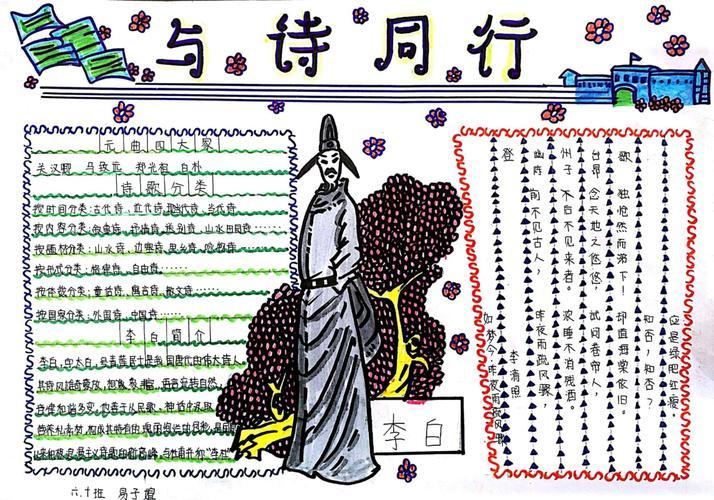 与诗同行
元曲四大家
关汉卿 马致远 郑光祖 白朴
诗歌分类
按时间分类:古代诗、近代诗、现当代诗、当代诗
按内容分类:叙事诗、抒情诗、送别诗、山水田园诗……
按题材分类:山水诗、边塞诗、思乡诗、咏物诗
按形式分类:格律诗、自由诗……
按体裁分类:童话诗、寓言诗、散文诗……
按国家分类:外国诗、中国诗……
李白简介
李白,字太白,号青莲居士是我国唐代伟大诗人
其诗风雄奇豪放,想象丰富,语言流转自然,
音律和谐多变,他善于从民歌、神话中汲取
营养和素材,构成其特有的瑰丽绚烂的色彩,是屈
原以来积极浪漫主义诗歌的新高峰,与杜甫并称“李杜”
李白
登幽州台歌
子昂
前不见古人,
后不见来者。
念天地之悠悠,
独怆然而涕下!
如梦令·昨夜雨疏风骤
李清照
昨夜雨疏风骤,
浓睡不消残酒。
试问卷帘人,
却道海棠依旧。
知否,知否?
应是绿肥红瘦
六、十班 易子煊